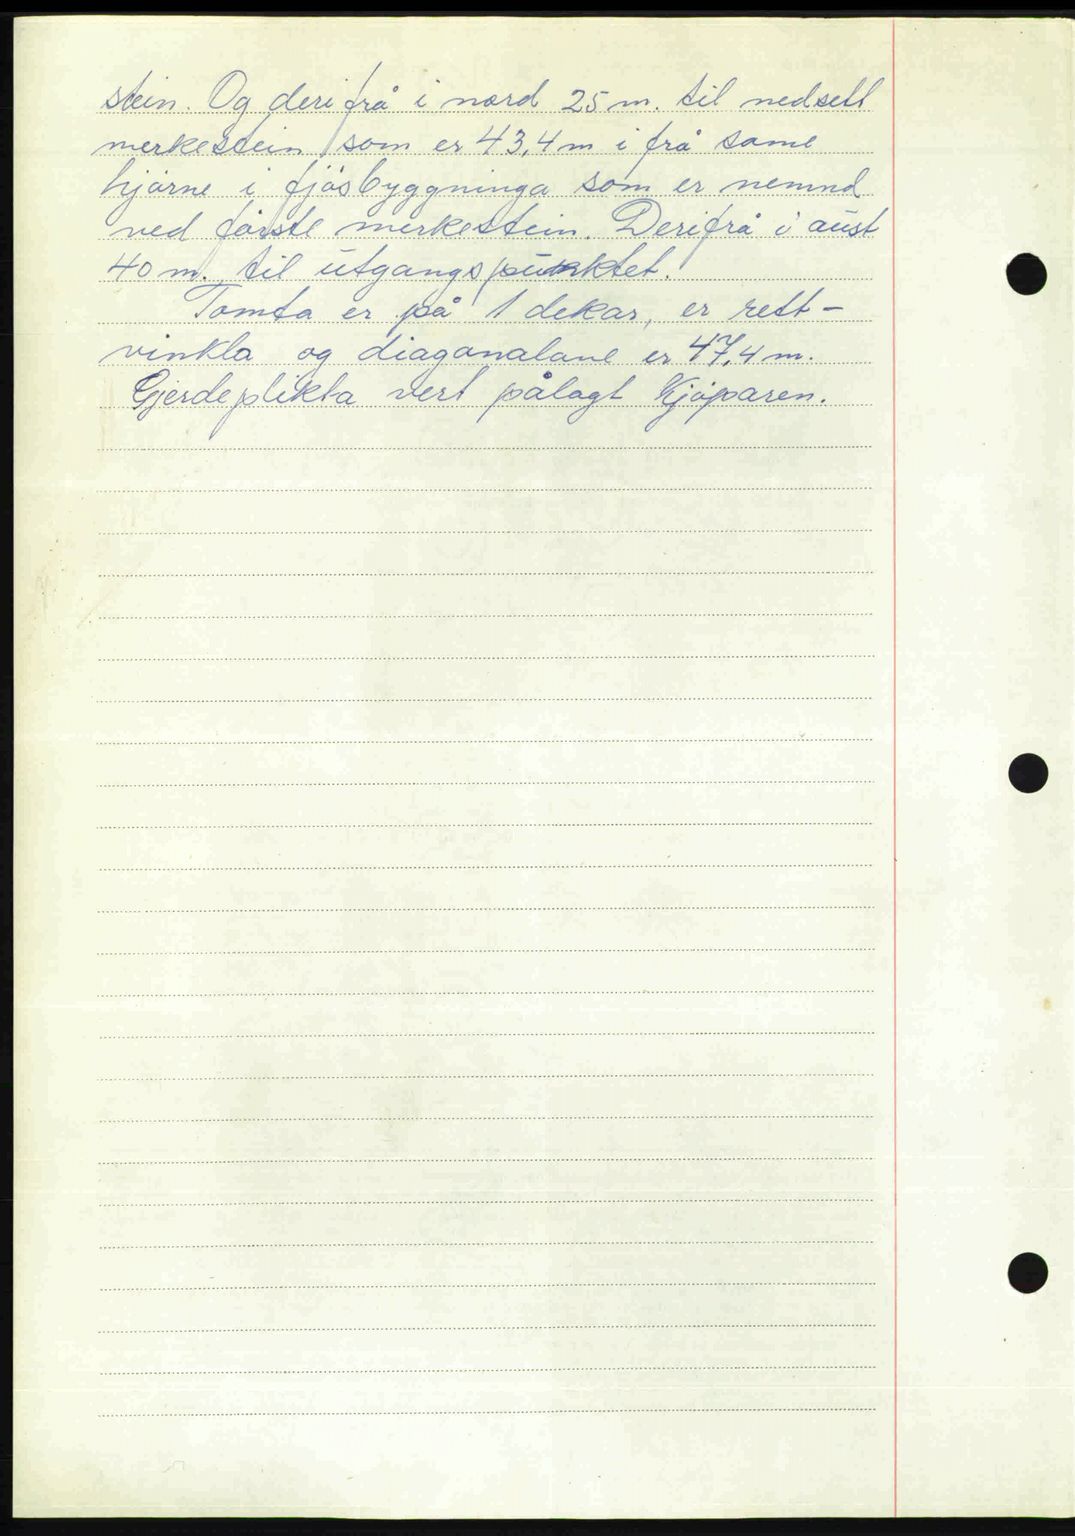 stein. Og derifrå i nord 25 m. til nedsett
merkestein som er 43,4 m i frå same
hjørne i fjøsbyggninga som er nemnd
ved første merkestein. Derifrå i aust
40 m. til utgangspunktet.
Tomta er på 1 dekar, er rett-
vinkla og diagonalane er 47,4 m.
Gjerdeplikta vert pålagt Kjøparen.